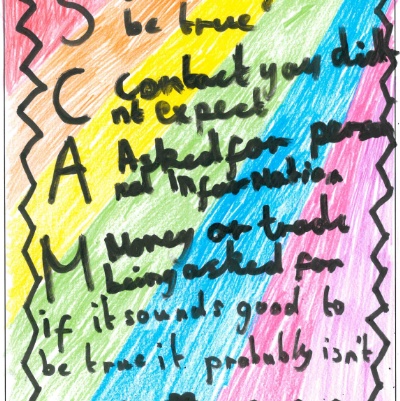 S
be true
C contact you did
nt expect
A Asked for person
nal information
M Money or trade
being asked for
if it sounds good to
be true it probably isn't